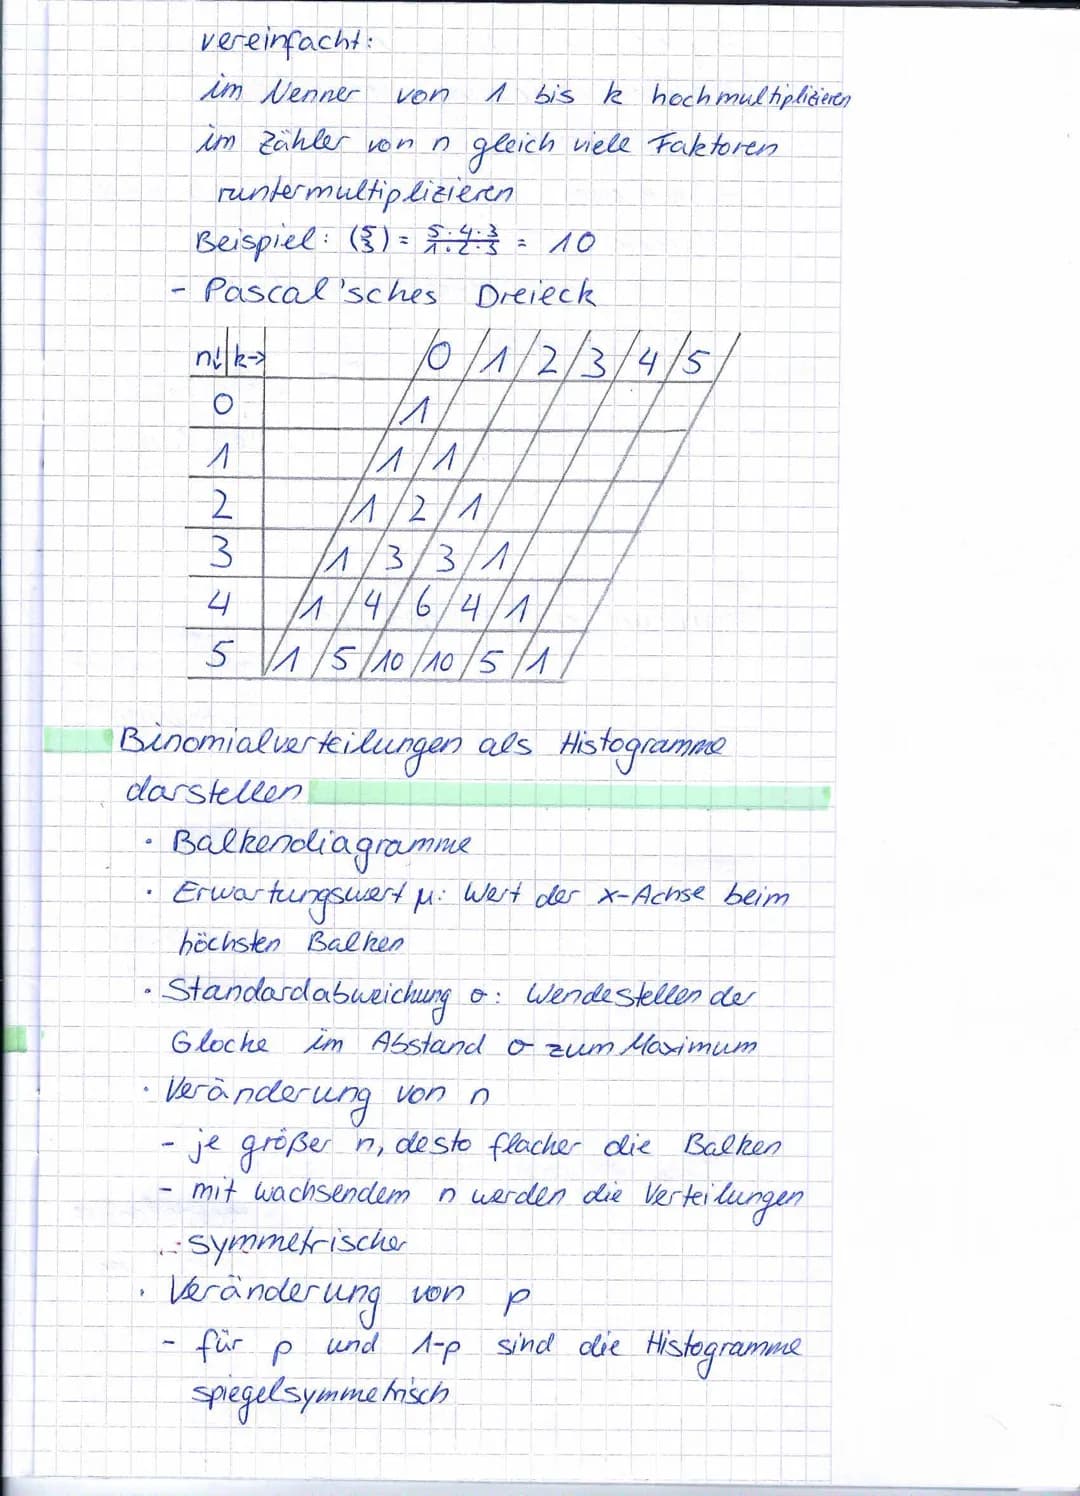 vereinfacht:
im Nenner von 1 bis k hochmultiplizieren
im Zähler von n gleich viele Faktoren
runtermultiplizieren
Beispiel: (5 3) = 5·4·3 / 1·2·3 = 10
- Pascal'sches Dreieck
n↓ k→ 0 1 2 3 4 5
0 1
1 1 1
2 1 2 1
3 1 3 3 1
4 1 4 6 4 1
5 1 5 10 10 5 1
Binomialverteilungen als Histogramme
darstellen
· Balkendiagramme
· Erwartungswert μ: Wert der x-Achse beim
höchsten Balken
· Standardabweichung σ: Wendestellen der
Glocke im Abstand σ zum Maximum
· Veränderung von n
- je größer n, desto flacher die Balken
- mit wachsendem n werden die Verteilungen
symmetrischer
· Veränderung von p
- für p und 1-p sind die Histogramme
spiegelsymmetrisch